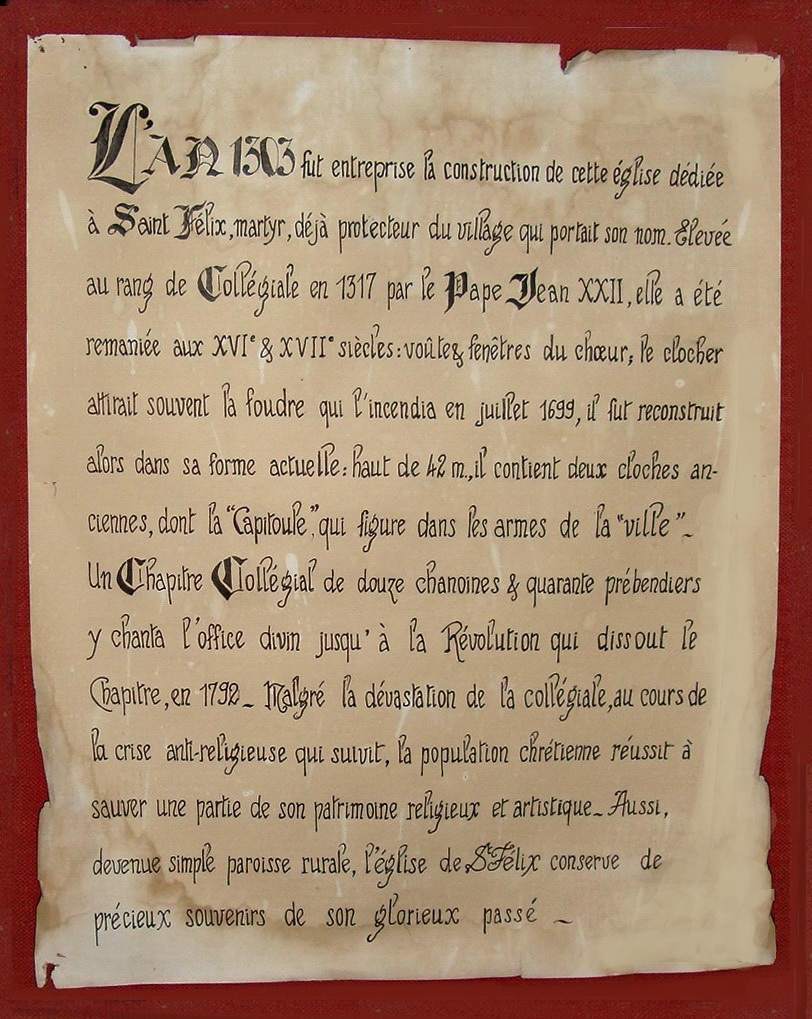 L'AN 1303 fut entreprise la construction de cette église dédiée
à Saint Félix, martyr, déjà protecteur du village qui portait son nom. Elevée
au rang de Collégiale en 1317 par le Pape Jean XXII, elle a été
remaniée aux XVIe & XVIIe siècles: voûte & fenêtres du chœur; le clocher
attirait souvent la foudre qui l'incendia en juillet 1699, il fut reconstruit
alors dans sa forme actuelle: haut de 42 m., il contient deux cloches an-
ciennes, dont la "Capitoule", qui figure dans les armes de la "ville".-
Un Chapitre Collégial de douze chanoines & quarante prébendiers
y chanta l'office divin jusqu'à la Révolution qui dissout le
Chapitre, en 1792- Malgré la dévastation de la collégiale, au cours de
la crise anti-religieuse qui suivit, la population chrétienne réussit à
sauver une partie de son patrimoine religieux et artistique- Aussi,
devenue simple paroisse rurale, l'église de St Félix conserve de
précieux souvenirs de son glorieux passé -